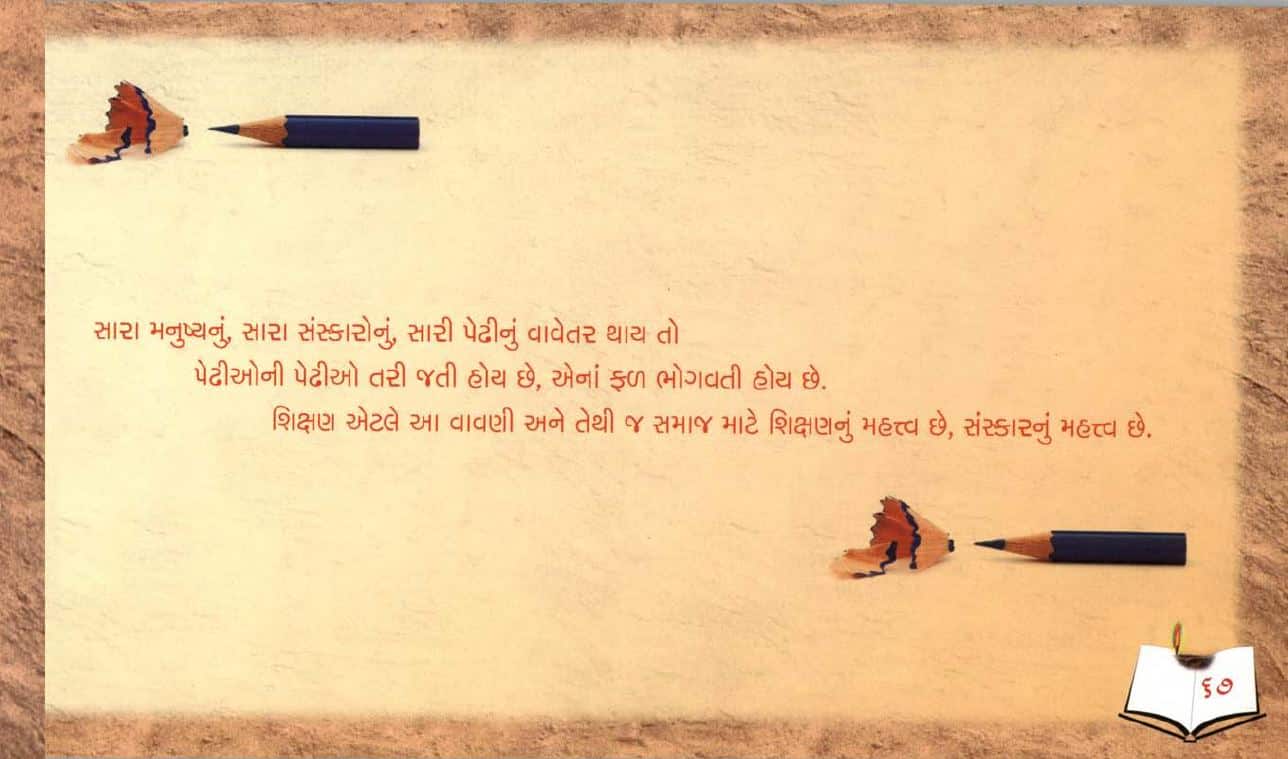 સારા મનુષ્યનું, સારા સંસ્કારોનું, સારી પેઢીનું વાવેતર થાય તો
પેઢીઓની પેઢીઓ તરી જતી હોય છે, એનાં ફળ ભોગવતી હોય છે.
શિક્ષણ એટલે આ વાવણી અને તેથી જ સમાજ માટે શિક્ષણનું મહત્ત્વ છે, સંસ્કારનું મહત્ત્વ છે.
૬૭